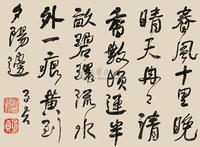 春風十里晚
晴天冉冉清
香數頃蓮半
畝碧環流水
外一痕黃到
夕陽邊